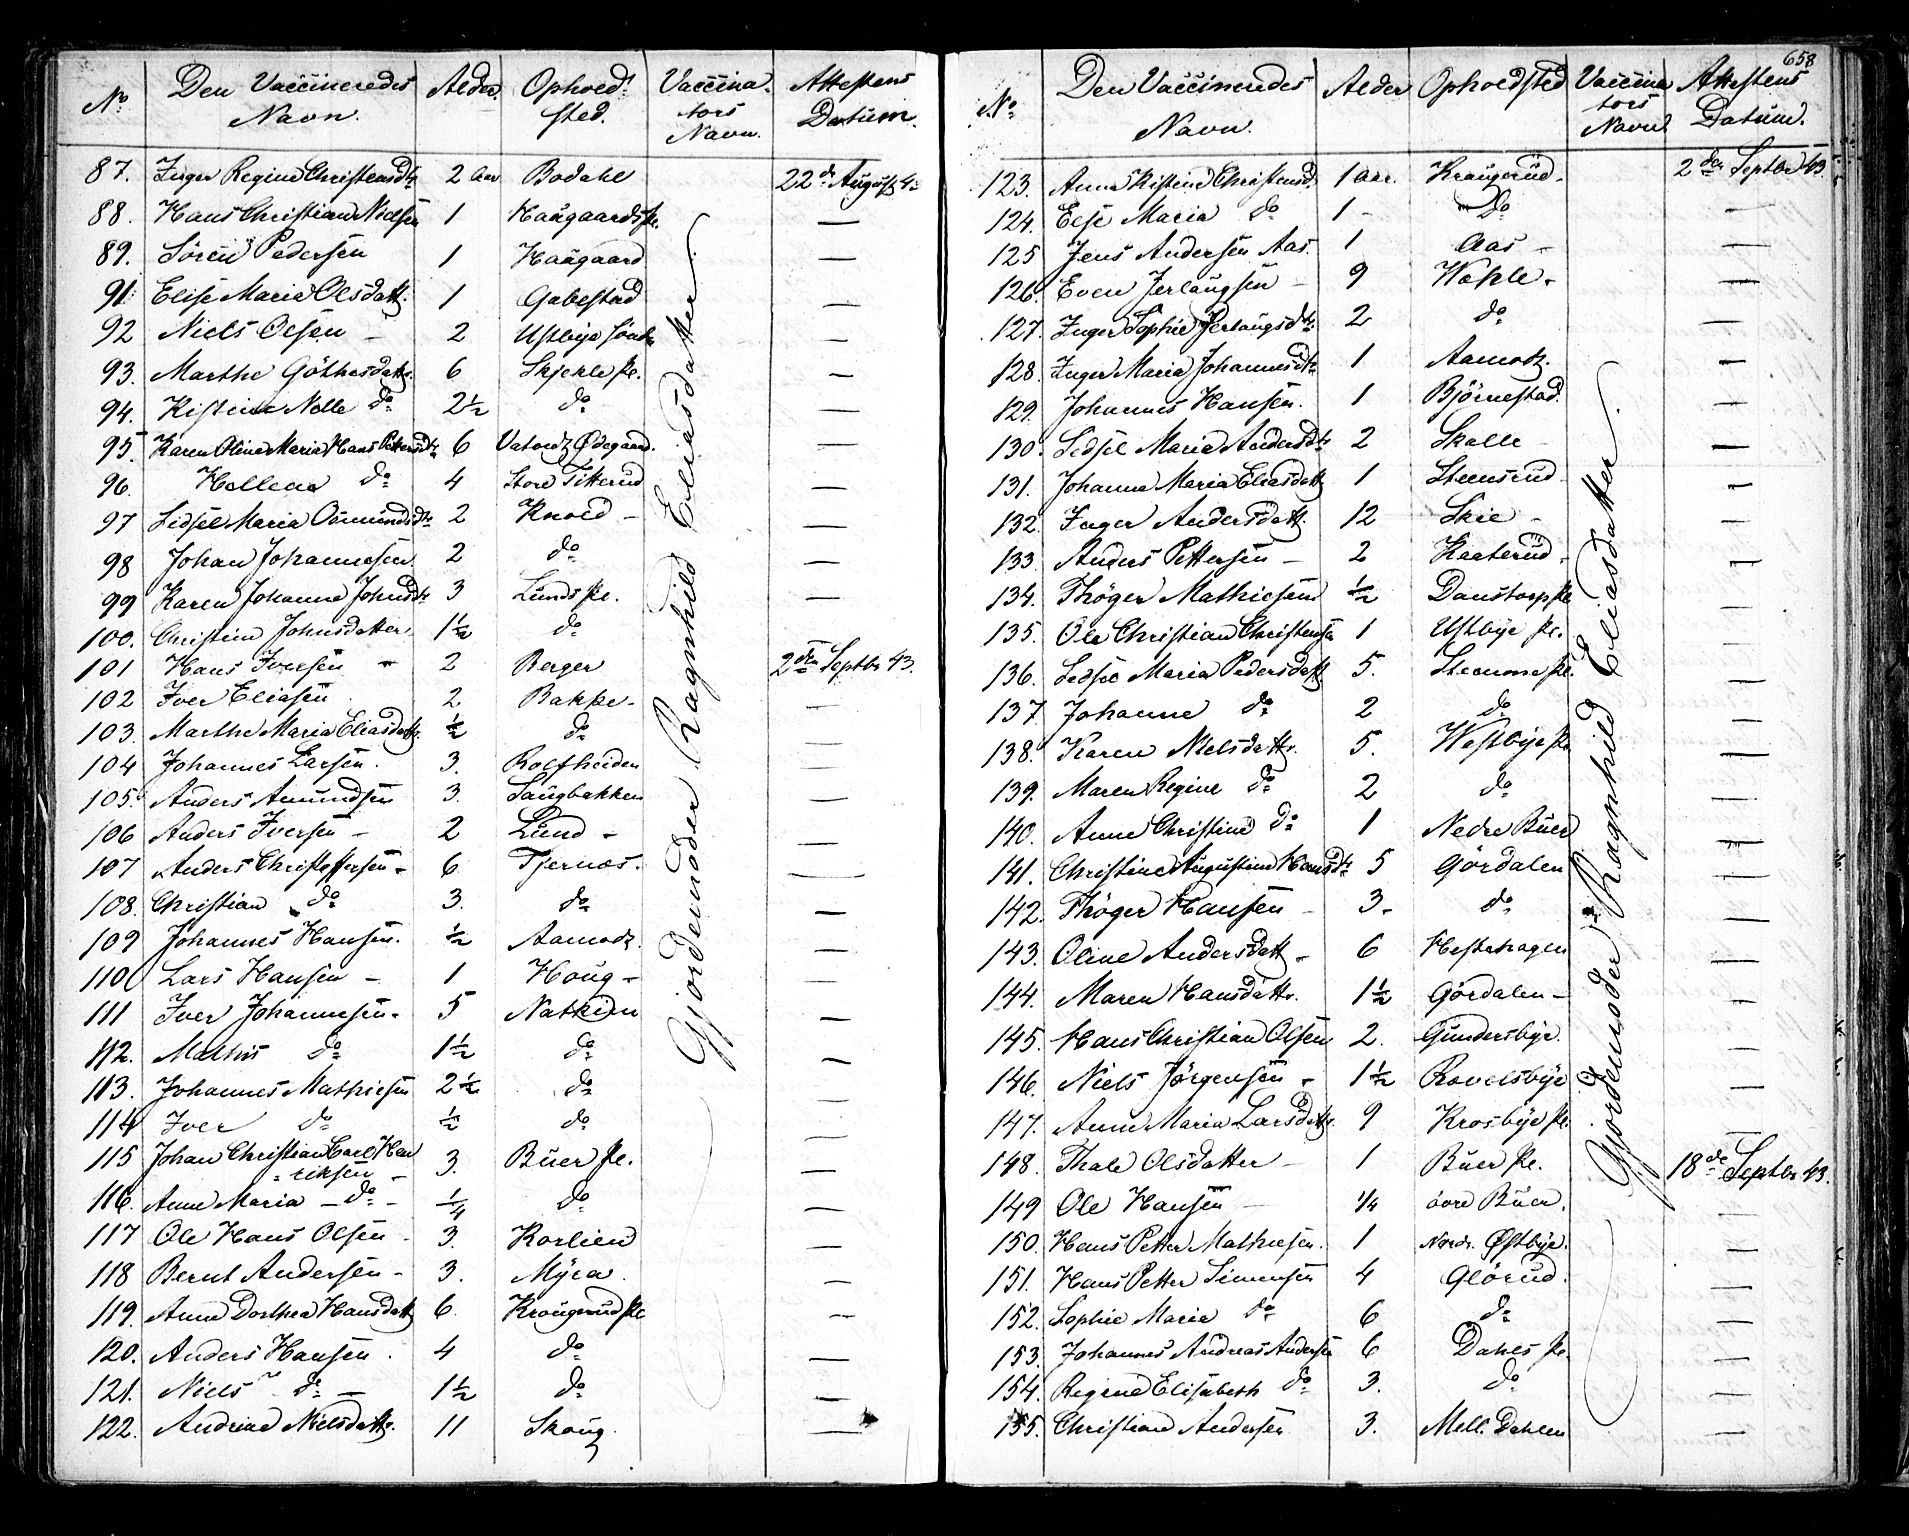 658
No. Den Vaccineredes Navn. Alder. Ophold sted. Vaccina tors Navn. Attestens Datum.
87. Inger Regine Christensdtr 2 Aar Bodahl 22de August 4
88. Hans Christian Nielsen 1 Haagaardspl.
89. Sören Pedersen 1 Haagaard
91. Elise Maria Olsdatt. 1 Gabestad
92 Niels Olsen – 2 Ustbye
93. Marthe Göthesdattr. 6 Skjehle Pl.
94. Kistine Nelle do 2½ do
95. Karen Oline Maria Hans Pettersdtr 6 Ødegaard.
96. Hellena do 4 Store Titterud
97 Sidsel Maria Osmundsdtr 2 Knold –
98 Johan Johannesen 2 do
99 Karen Johanne Johnsdtr. 3 Lunds Pl.
100. Christine Johnsdatter. 1½ do
101 Hans Iversen – 2 Berger 2den Septbr 43.
102 Iver Eliasen 2 Bakke –
103. Marthe Maria Eliasdattr. ½ do
104 Johannes Larsen. 3. Rolfheiden
105. Anders Amundsen 3. Saugbakken
106 Anders Iversen – 2 Lund –
107 Anders Christoffersen – 6 Tjernæs.
108. Christian do 3. do
109 Johannes Hansen. ½ Aamodt.
110 Lars Hansen – 1 Houg –
111 Iver Johannesen. 5
112. Mathis do 1½ do
113. Johannes Mathiesen 2½ do
114 Iver do ½ do
115 Johan Christian Carl Hen
riksen – 3. Buer Pl.
116. Anne Maria – do – ¼ do
117 Ole Hans Olsen – 3. Korlien
118 Bernt Andersen – 3. Myra.
119. Anne Dorthea Hansdatt 6. Kraugerud Pl
120. Anders Hansen. 4 do
121. Niels do – 1½ do
122. Andrine Nielsdattr. 11 Skoug
Gjordemoder Ragnhild Eliasdatter.
No. Den Vaccineredes Navn. Alder Opholdsted Vaccina tors Navn Attestens Datum.
123. Anne Kistine Christensd. 1 Aar. Kraugerud. 2den Septbr 43.
124. Else Maria do 1 – do
125 Jens Andersen Aas. 1 Aas –
126. Even Jerlaugsen – 9 Wahle –
127. Inger Sophie Jerlaugsdtr. 2 do
128. Inger Maria Johannesdtr 1 Aamodt.
129. Johannes Hansen. 1 Björnestad.
130. Sidsel Maria Andersdtr 2 Skalle –
131. Johanne Maria Eliasdatt 1 Steensrud
132. Inger Andersdatt. 12 Skie –
133. Anders Pettersen – 2 Kaaterud.
134. Thöger Mathiesen ½ Danstorp Pl
135. Ole Christian Christensen 1 Ustbye Pl.
136. Sidsel Maria Pedersdatt 5. Pl.
137. Johanne do 2 do
138. Karen Nielsdattr. 5. Westbye Pl
139. Maren Regine do 2 do
140. Anne Christine do 1 Nedre Buer
141. Christine Augustine Hansdtr 5 Gördalen
142. Thöger Hansen – 3 – do
143. Oline Andersdatt – 6 Hestehagen
144. Maren Hansdattr. 1½ Gördalen –
145. Hans Christian Olsen 2. Gundersbye.
146. Niels Jörgensen – 1½ Ravelsbye
147. Anne Maria Larsdattr. 9 Krosbye Pl.
148. Thale Olsdatter – 1 Buer Pl. 18de Septbr 43.
149 Ole Hansen – ¼ övre Buer.
150. Hans Petter Mathiesen. 1 Nordr. Østbye.
151. Hans Petter Simensen 4 Glörud.
152. Sophie Maria do 6 do
153. Johannes Andreas Andersen 6 Dahls Pl.
154. Regine Elisabeth do 3. do
155. Christian Andersen 3. Mell. Dahlen
Gjordemoder Ragnhild Eliasdatter.